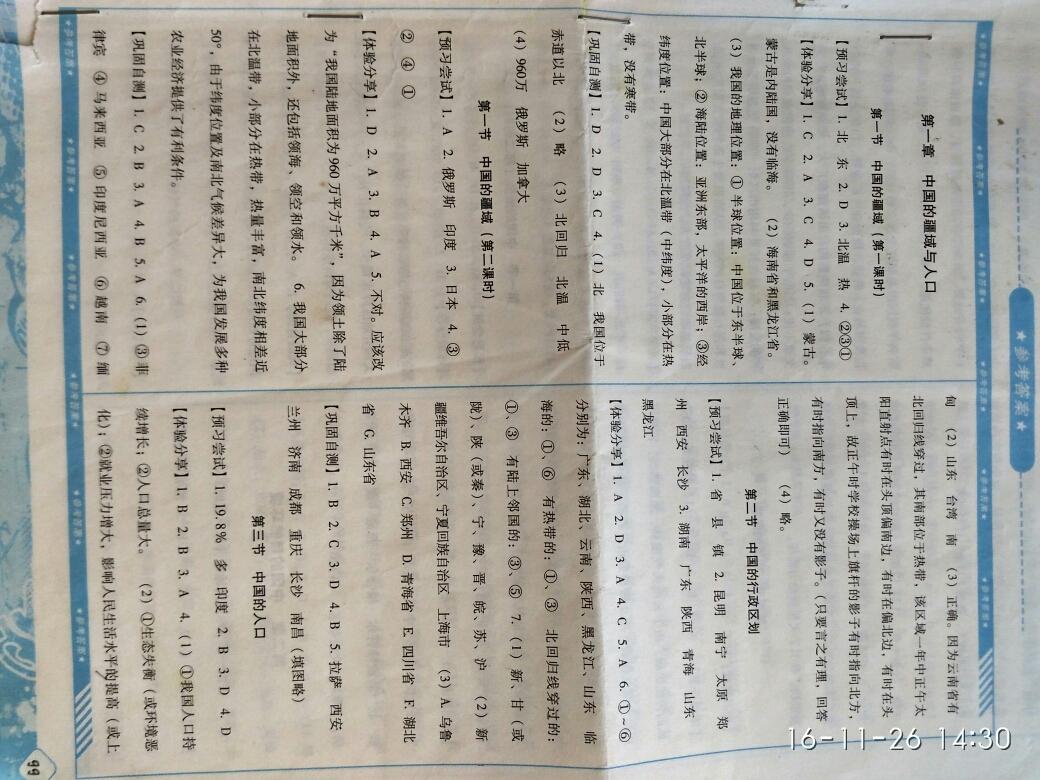 ★参考答案★
★参考答案★ ★参考答案★ ★参考答案★ ★参考答案★ ★参考答案★ ★参考答案★
第一章 中国的疆域与人口
第一节 中国的疆域(第一课时)
【预习尝试】1. 北 东 2. D 3. 北温 热 4. ②③①
【体验分享】1. C 2. A 3. C 4. D 5. (1)蒙古。
蒙古是内陆国,没有临海。 (2)海南省和黑龙江省。
(3)我国的地理位置:①半球位置:中国位于东半球、
北半球;②海陆位置:亚洲东部,太平洋的西岸;③经
纬度位置:中国大部分在北温带(中纬度),小部分在热
带,没有寒带。
【巩固自测】1. D 2. D 3. C 4. (1)北 我国位于
赤道以北 (2)略 (3)北回归 北温 中 低
(4)960万 俄罗斯 加拿大
第一节 中国的疆域(第二课时)
【预习尝试】1. A 2. 俄罗斯 印度 3. 日本 4. ③
② ④ ①
【体验分享】1. D 2. A 3. B 4. A 5. 不对。应该改
为“我国陆地面积为960万平方千米”,因为领土除了陆
地面积外,还包括领海、领空和领水。 6. 我国大部分
在北温带,小部分在热带,热量丰富,南北纬度相差近
50°,由于纬度位置及南北气候差异大,为我国发展多种
农业经济提供了有利条件。
【巩固自测】1. C 2. B 3. A 4. B 5. A 6. (1)③菲
律宾 ④马来西亚 ⑤印度尼西亚 ⑥越南 ⑦缅
甸 (2)山东 台湾 南 (3)正确。因为云南省有
北回归线穿过,其南部位于热带,该区域一年中正午太
阳直射点有时在头顶偏南边,有时在偏北边,有时在头
顶上,故正午时学校操场上旗杆的影子有时指向北方,
有时指向南方,有时又没有影子。(只要言之有理,回答
正确即可) (4)略。
第二节 中国的行政区划
【预习尝试】1. 省 县 镇 2. 昆明 南宁 太原 郑
州 西安 长沙 3. 湖南 广东 陕西 青海 山东
黑龙江
【体验分享】1. A 2. D 3. A 4. C 5. A 6. ①~⑥
分别为:广东、湖北、云南、陕西、黑龙江、山东 临
海的:①、⑥ 有热带的:①、③ 北回归线穿过的:
①、③ 有陆上邻国的:③、⑤ 7. (1)新、甘(或
陇)、陕(或秦)、宁、豫、晋、皖、苏、沪 (2)新
疆维吾尔自治区、宁夏回族自治区 上海市 (3)A. 乌鲁
木齐 B. 西安 C. 郑州 D. 青海省 E. 四川省 F. 湖北
省 G. 山东省
【巩固自测】1. B 2. C 3. D 4. B 5. 拉萨 西安
兰州 济南 成都 重庆 长沙 南昌(填图略)
第三节 中国的人口
【预习尝试】1. 19.8% 多 印度 2. B 3. D 4. D
【体验分享】1. B 2. B 3. A 4. (1)①我国人口持
续增长;②人口总量大。 (2)①生态失衡(或环境恶
化);②就业压力增大,影响人民生活水平的提高(或上
★参考答案★ ★参考答案★ ★参考答案★ ★参考答案★ ★参考答案★ ★参考答案★
99
16-11-26 14:30